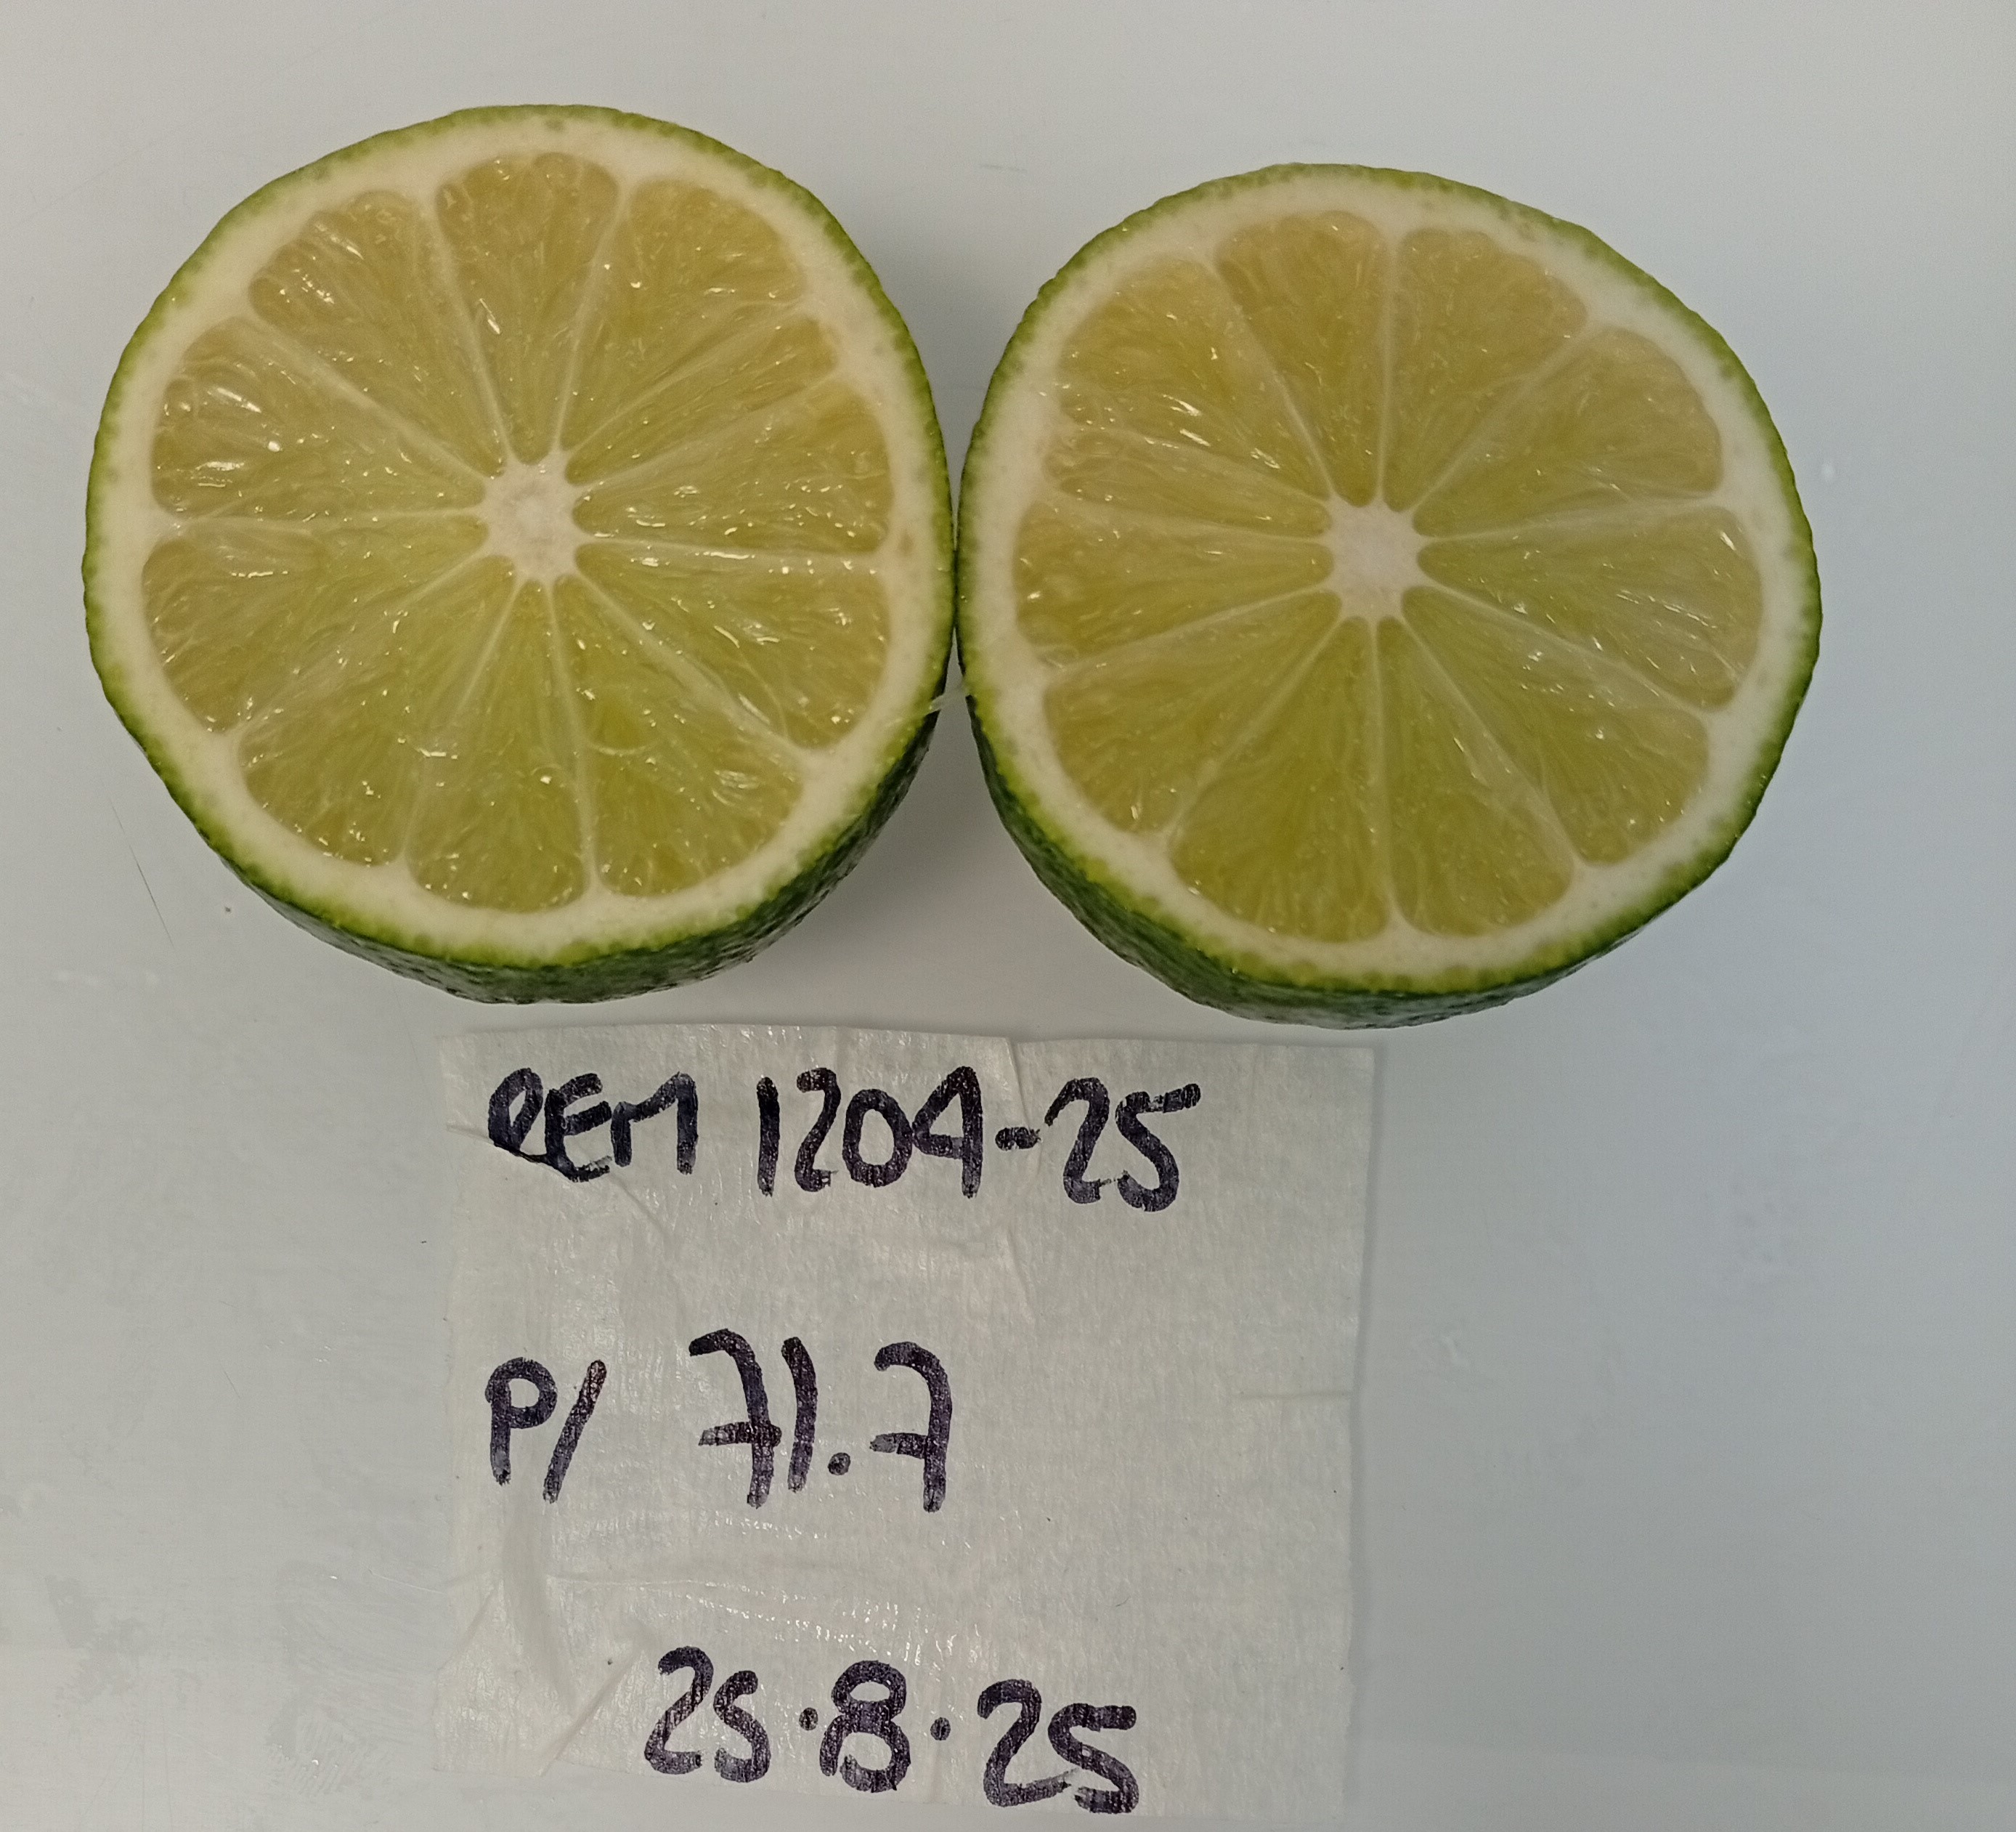 REM 1204-25
P/ 71.7
25.8.25